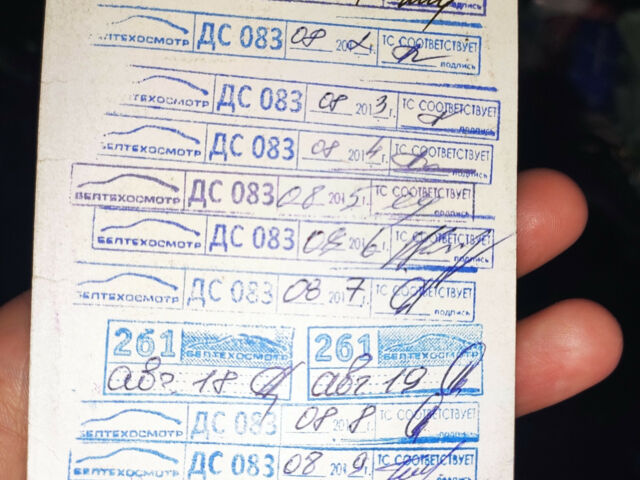 БЕЛТЕХОСМОТР ДС 083 08 20 г. ТС СООТВЕТСТВУЕТ подпись
БЕЛТЕХОСМОТР ДС 083 08 2013г. ТС СООТВЕТСТВУЕТ подпись
БЕЛТЕХОСМОТР ДС 083 08 2014г. ТС СООТВЕТСТВУЕТ подпись
БЕЛТЕХОСМОТР ДС 083 08 2015г. ТС СООТВЕТСТВУЕТ подпись
БЕЛТЕХОСМОТР ДС 083 08 6г. ТС СООТВЕТСТВУЕТ подпись
БЕЛТЕХОСМОТР ДС 083 08 2017г. ТС СООТВЕТСТВУЕТ подпись
261 БЕЛТЕХОСМОТР 261 БЕЛТЕХОСМОТР
авг 18 авг 19
БЕЛТЕХОСМОТР ДС 083 08 8 ТС СООТВЕТСТВУЕТ
БЕЛТЕХОСМОТР ДС 083 08 2019г. ТС СООТВЕТСТВУЕТ подпись